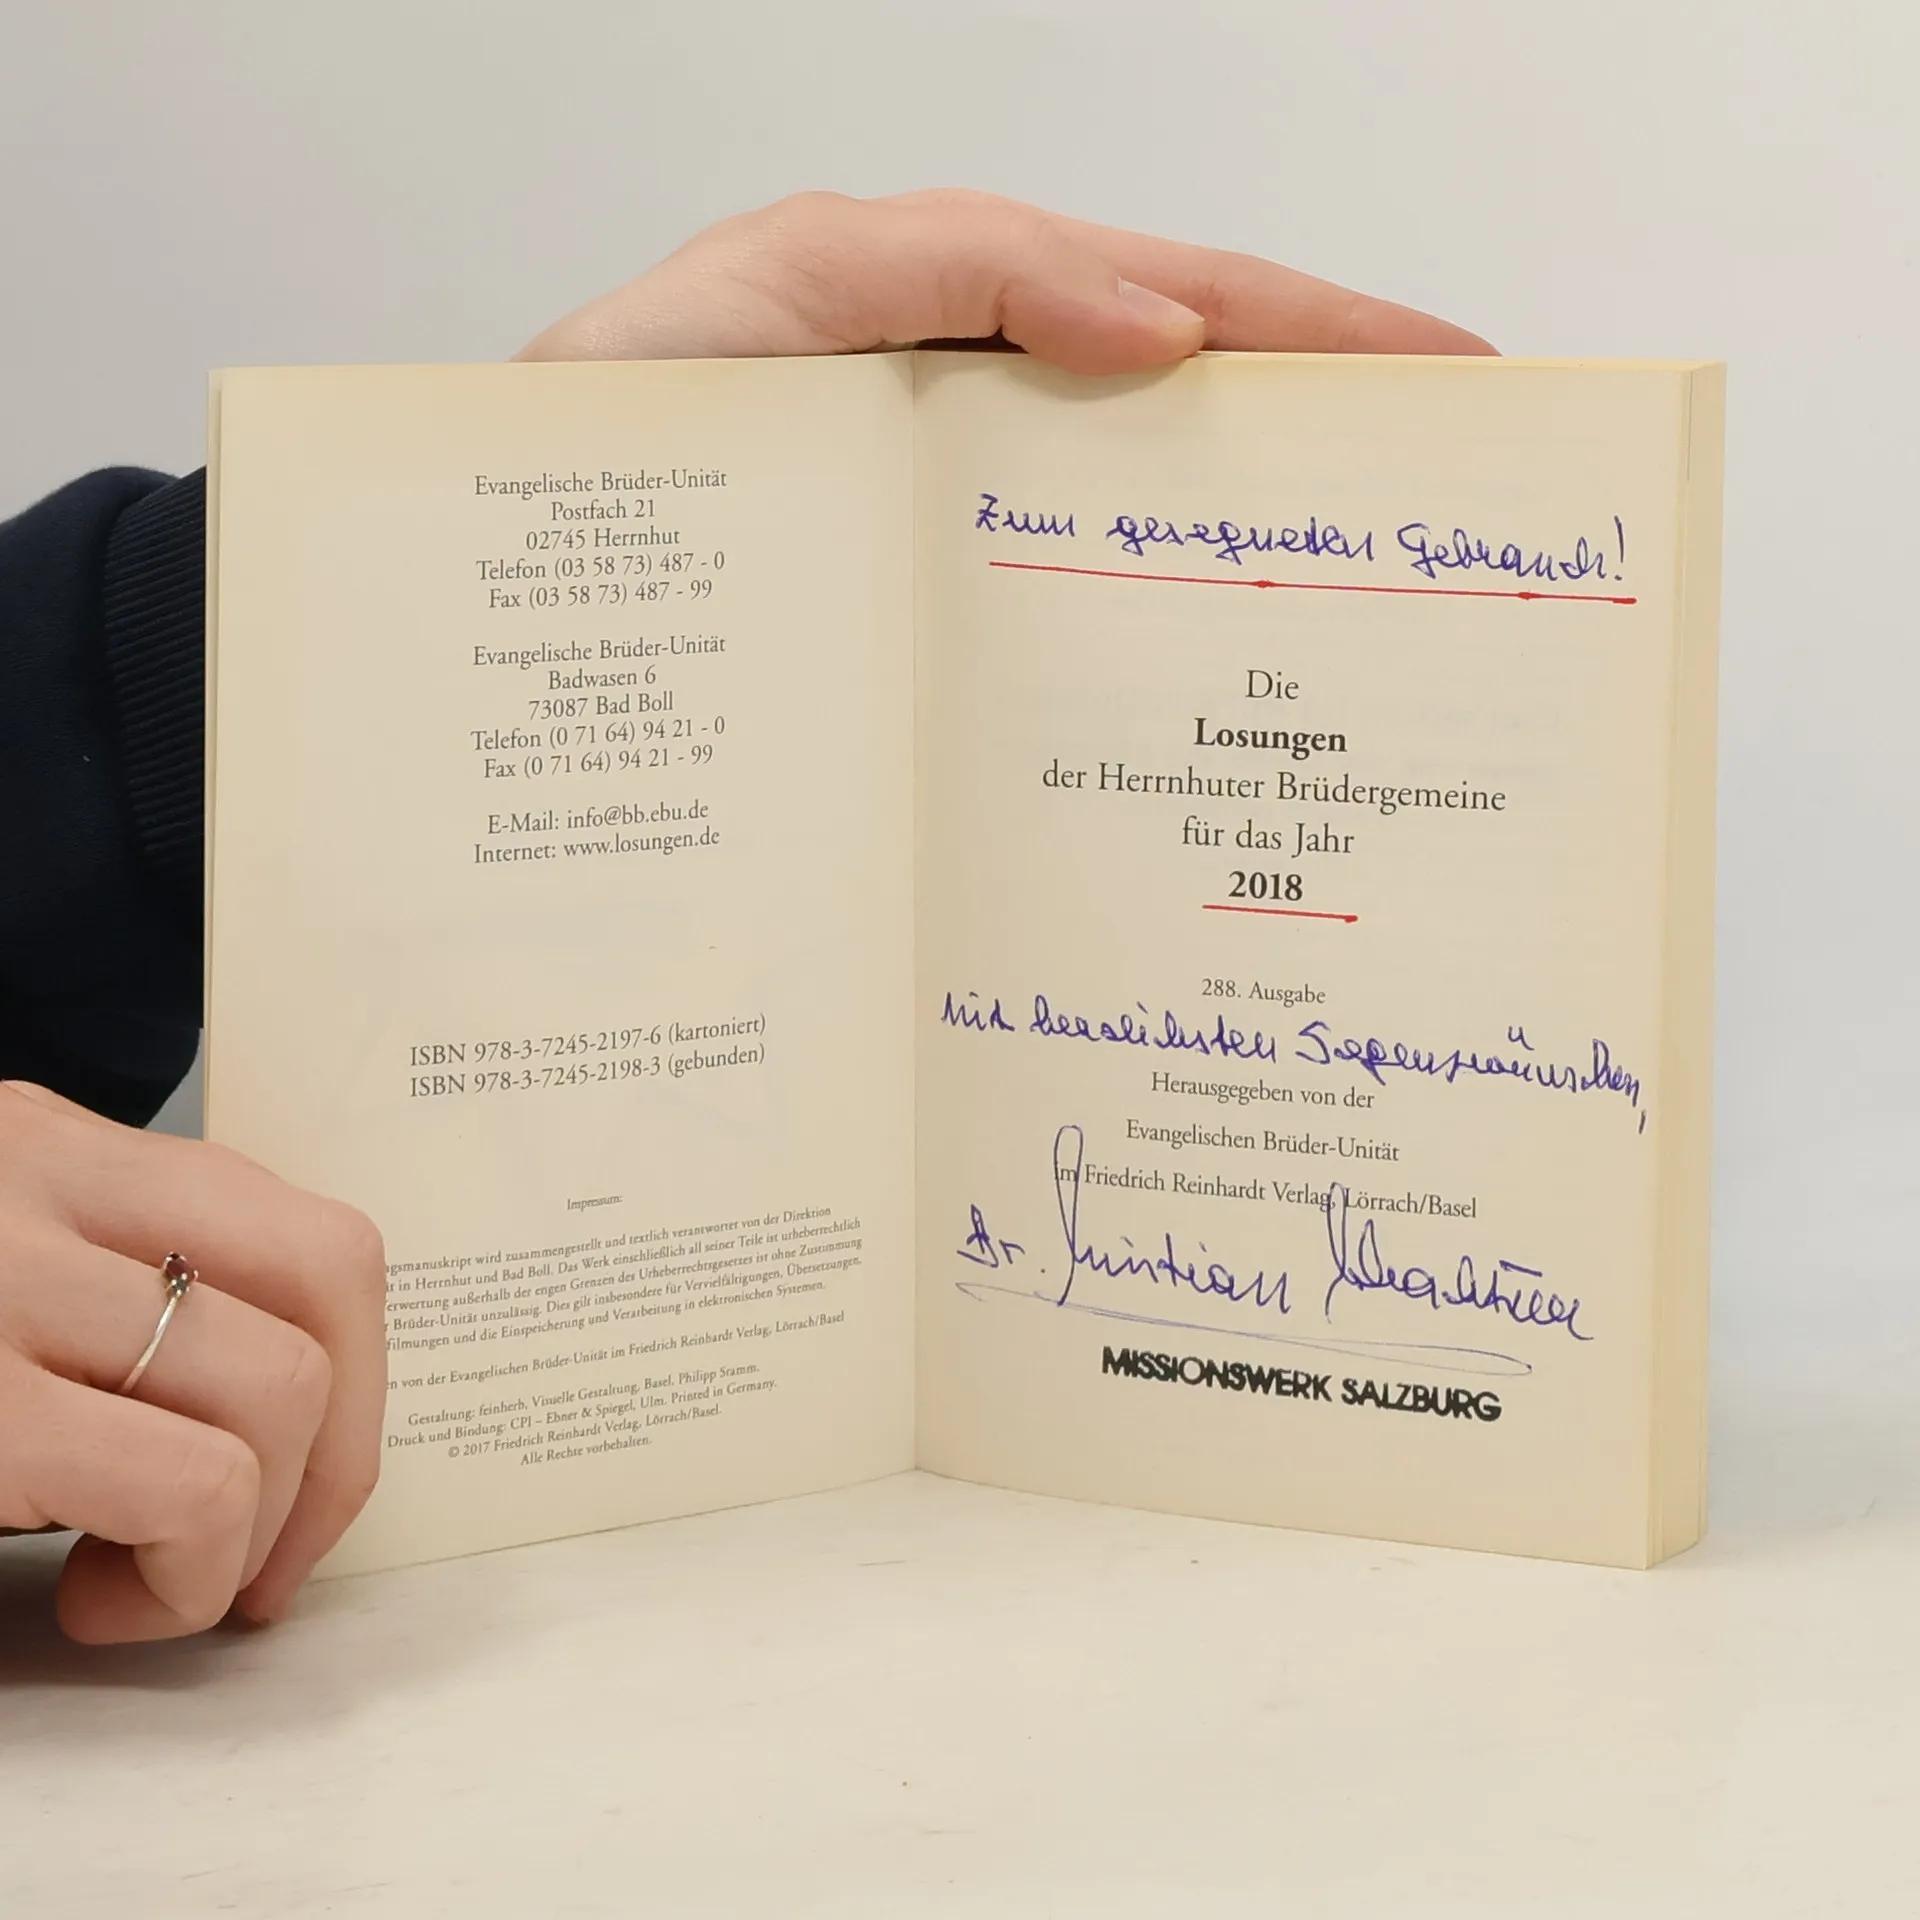 Evangelische Brüder-Unität
Postfach 21
02745 Herrnhut
Telefon (03 58 73) 487 - 0
Fax (03 58 73) 487 - 99
Evangelische Brüder-Unität
Badwasen 6
73087 Bad Boll
Telefon (0 71 64) 94 21 - 0
Fax (0 71 64) 94 21 - 99
E-Mail: info@bb.ebu.de
Internet: www.losungen.de
ISBN 978-3-7245-2197-6 (kartoniert)
ISBN 978-3-7245-2198-3 (gebunden)
Impressum:
gsmanuskript wird zusammengestellt und textlich verantwortet von der Direktion
in Herrnhut und Bad Boll. Das Werk einschließlich all seiner Teile ist urheberrechtlich
erwertung außerhalb der engen Grenzen des Urheberrechtsgesetzes ist ohne Zustimmung
Brüder-Unität unzulässig. Dies gilt insbesondere für Vervielfältigungen, Übersetzungen,
filmungen und die Einspeicherung und Verarbeitung in elektronischen Systemen.
n von der Evangelischen Brüder-Unität im Friedrich Reinhardt Verlag, Lörrach/Basel
Gestaltung: feinherb, Visuelle Gestaltung, Basel, Philipp Sramm.
Druck und Bindung: CPI – Ebner & Spiegel, Ulm. Printed in Germany.
© 2017 Friedrich Reinhardt Verlag, Lörrach/Basel.
Alle Rechte vorbehalten.
Zum gesegneten Gebrauch!
Die
Losungen
der Herrnhuter Brüdergemeine
für das Jahr
2018
288. Ausgabe
Mit herzlichsten Segenswünschen,
Herausgegeben von der
Evangelischen Brüder-Unität
im Friedrich Reinhardt Verlag, Lörrach/Basel
Dr.
MISSIONSWERK SALZBURG